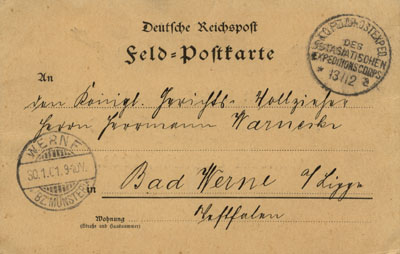 Deutsche Reichspost
Feld=Postkarte
DES
OSTASIATISCHEN
EXPEDITIONSCORPS
* 13/12
An
den Königl. Gerichts-Vollzieher
Herrn Herrmann Warnecke
WERNE
30.1.01. 9-10V.
BZ. MÜNSTER
in Bad Werne a/Lippe
Westfalen
Wohnung
(Straße und Hausnummer)